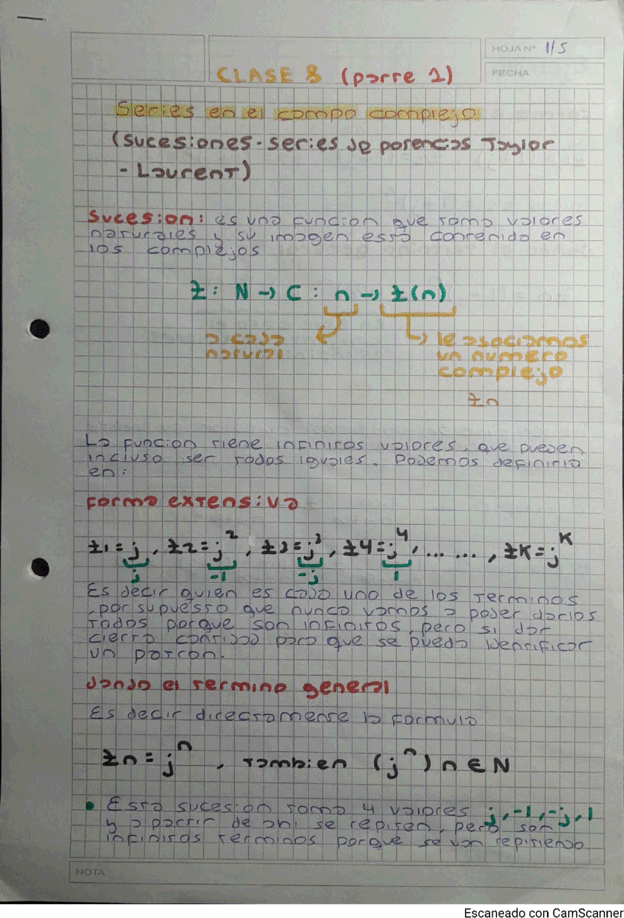 HOJA Nº 1/5
CLASE 8 (parte 1)
FECHA
Series en el campo complejo
(sucesiones - series de potencias Taylor
- Laurent)
Sucesion: es una funcion que toma valores
naturales y su imagen esta contenido en
los complejos
Z : N → C : n → Z(n)
a cada
natural
le asociamos
un numero
complejo
Zn
La funcion tiene infinitos valores, que pueden
incluso ser todos iguales. Podemos definirla
en:
Forma extensiva
Z1 = j , Z2 = j² , Z3 = j³ , Z4 = j⁴ , ... ... , ZK = j^K
j -1 -j 1
Es decir quien es cada uno de los terminos
, por supuesto que nunca vamos a poder darlos
todos porque son infinitos, pero si dar
cierta cantidad para que se pueda identificar
un patron.
dando el termino general
Es decir directamente la formula
Zn = j^n , tambien (j^n) n ∈ N
• Esta sucesion toma 4 valores j, -1, -j, 1
y a partir de ahi se repiten, pero son
infinitos terminos porque se van repitiendo
NOTA
Escaneado con CamScanner